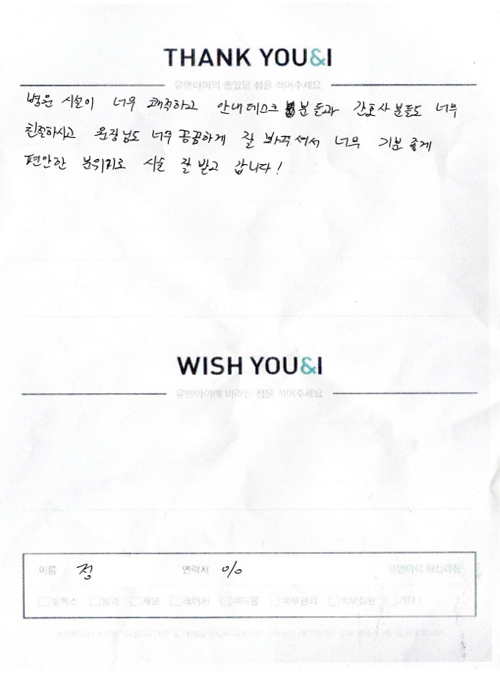 THANK YOU&I
유앤아이의 좋았던 점을 적어주세요
병원 시설이 너무 쾌적하고 안내데스크 분들과 간호사분들도 너무
친절하시고 원장님도 너무 꼼꼼하게 잘 봐주셔서 너무 기분 좋게
편안한 분위기로 시술 잘 받고 갑니다!
WISH YOU&I
유앤아이에 바라는 점을 적어주세요
이름 정 연락처 010
보톡스 필러 제모 레이저 여드름 피부관리 기타 ( )